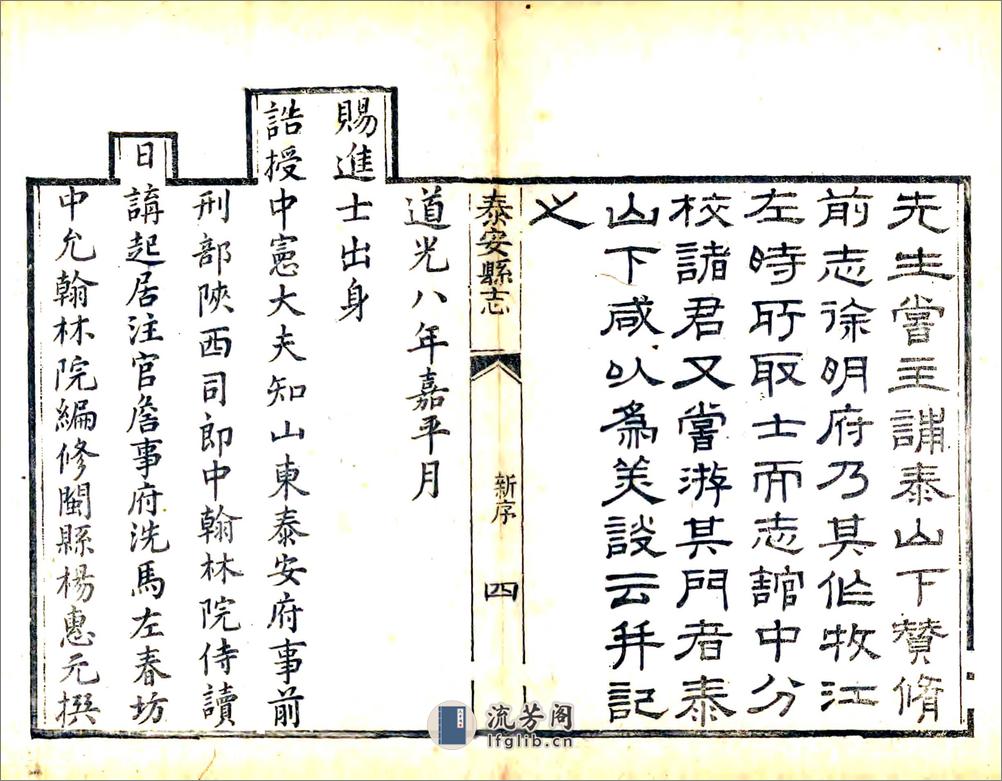 先生嘗主講泰山下賛脩
前志徐明府乃其作牧江
左時所取士而志館中分
校諸君又嘗游其門者泰
山下咸以為美談云并記
之
泰安縣志
新序
四
道光八年嘉平月
賜進士出身
誥授中憲大夫知山東泰安府事前
刑部陝西司郎中翰林院侍讀
日講起居注官詹事府洗馬左春坊
中允翰林院編修閩縣楊惠元撰
流芳阁
lfglib.cn